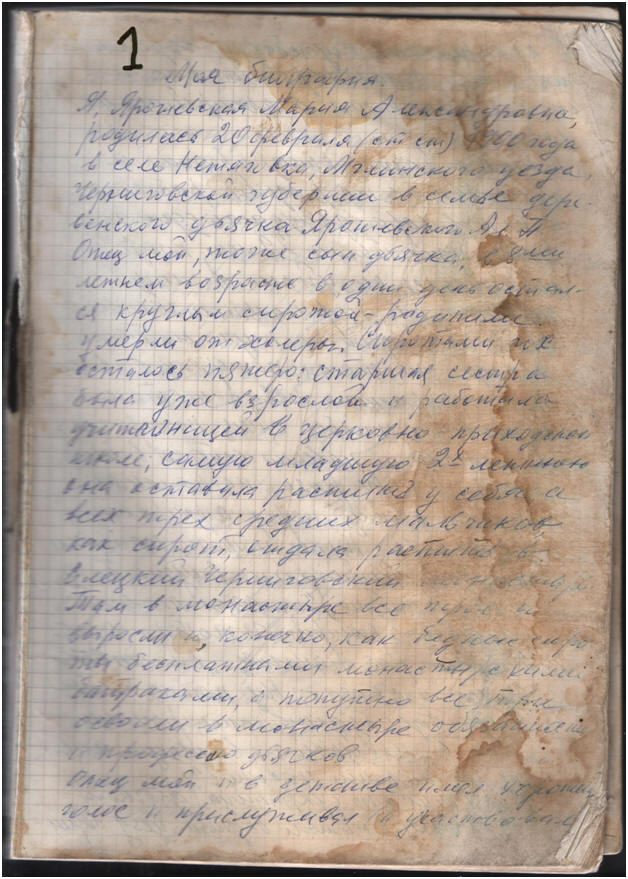 1
Моя биография.
Я, Ярошевская Мария Александровна,
родилась 20 февраля (ст ст) 1900 года
в селе Нетяговка, Мглинского уезда,
Черниговской губернии в семье дере-
венского дьячка Ярошевского Ал
Отец мой, тоже сын дьячка,
летнем возрасте в один день остал-
ся круглым сиротой - родители
умерли от холеры. Сиротами их
осталось пятеро: старшая сестра
была уже взрослой и работала
учительницей в церковно приходской
школе, самую младшую 2х летнюю
она оставила растить у себя а
всех трех средних мальчиков,
как сирот, отдала растить в
Елецкий Черниговский монастырь.
Там в монастыре все трое и
выросли и, конечно, как бедные сиро
ты бесплатными монастырскими
батраками, а попутно все три
освоили в монастыре
и профессию дьячков
Отец мой и в детстве имел хороший
голос и прислуживал и участвовал